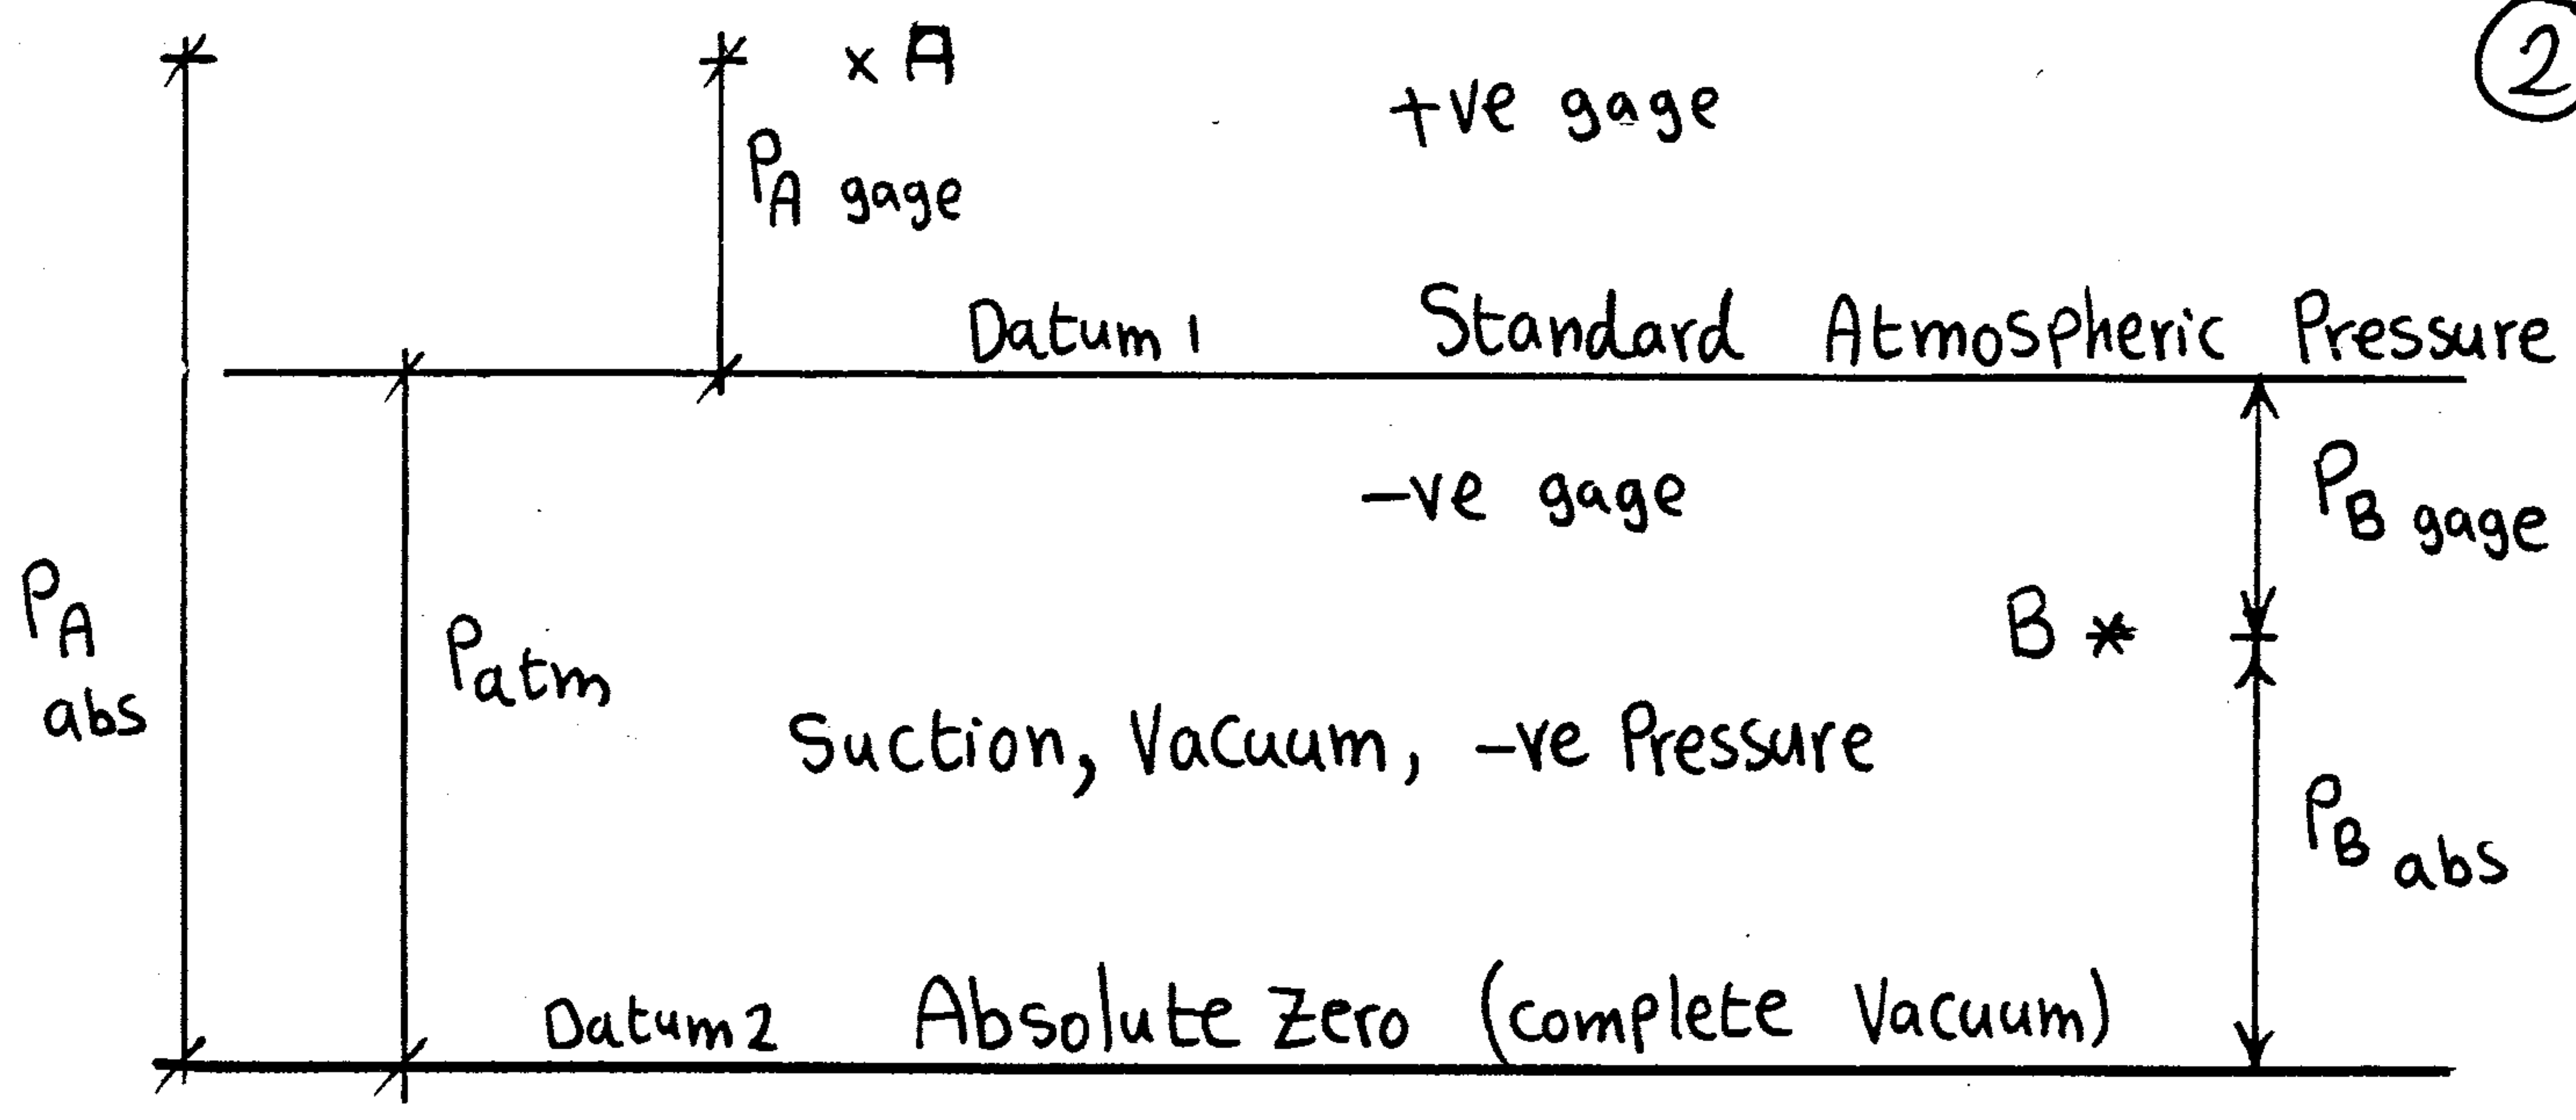 2
x A
+ve gage
PA gage
Datum 1 Standard Atmospheric Pressure
-ve gage
PB gage
PA abs
Patm
B *
Suction, Vacuum, -ve Pressure
PB abs
Datum 2 Absolute Zero (complete Vacuum)